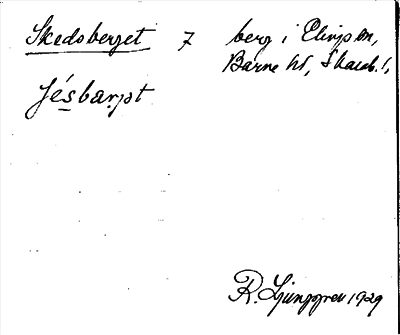 Skedsberget 7 berg i Elings sn,
Barne hd, Skarab. l,
fésbarjt
R. Ljunggren 1929